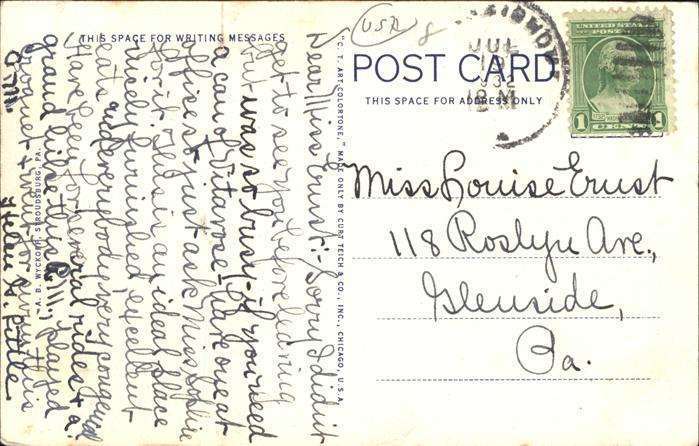 THIS SPACE FOR WRITING MESSAGES
Dear Miss Ernst:- Sorry I didn't
get to see you before leaving
but was so busy - if you need
a can of Vitarose I have one at
office so just ask Miss Sophie
for it. This is an ideal place
nicely furnished excellent
eats and everybody very congenial
Have been for several rides & a
grand hike thru hills; played
& went for swim this
a.m.
Helen
A. B. WYCKOFF, STROUDSBURG, PA.
"C. T. ART-COLORTONE," MADE ONLY BY CURT TEICH & CO., INC., CHICAGO, U.S.A.
USA
8
JUL
12 M
UNITED STATES
POSTAGE
1 1
POST CARD
THIS SPACE FOR ADDRESS ONLY
Miss Louise Ernst
118 Roslyn Ave.,
Glenside,
Pa.